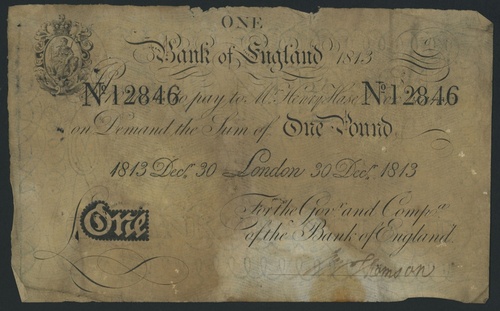 ONE
Bank of England 1813
Nº 12846 to pay to Mr. Henry Hase Nº 12846
on Demand the Sum of One Pound
1813 Decr. 30 London 30 Decr. 1813
For the Govr. and Compa.
of the Bank of England.
£ One
Thomson